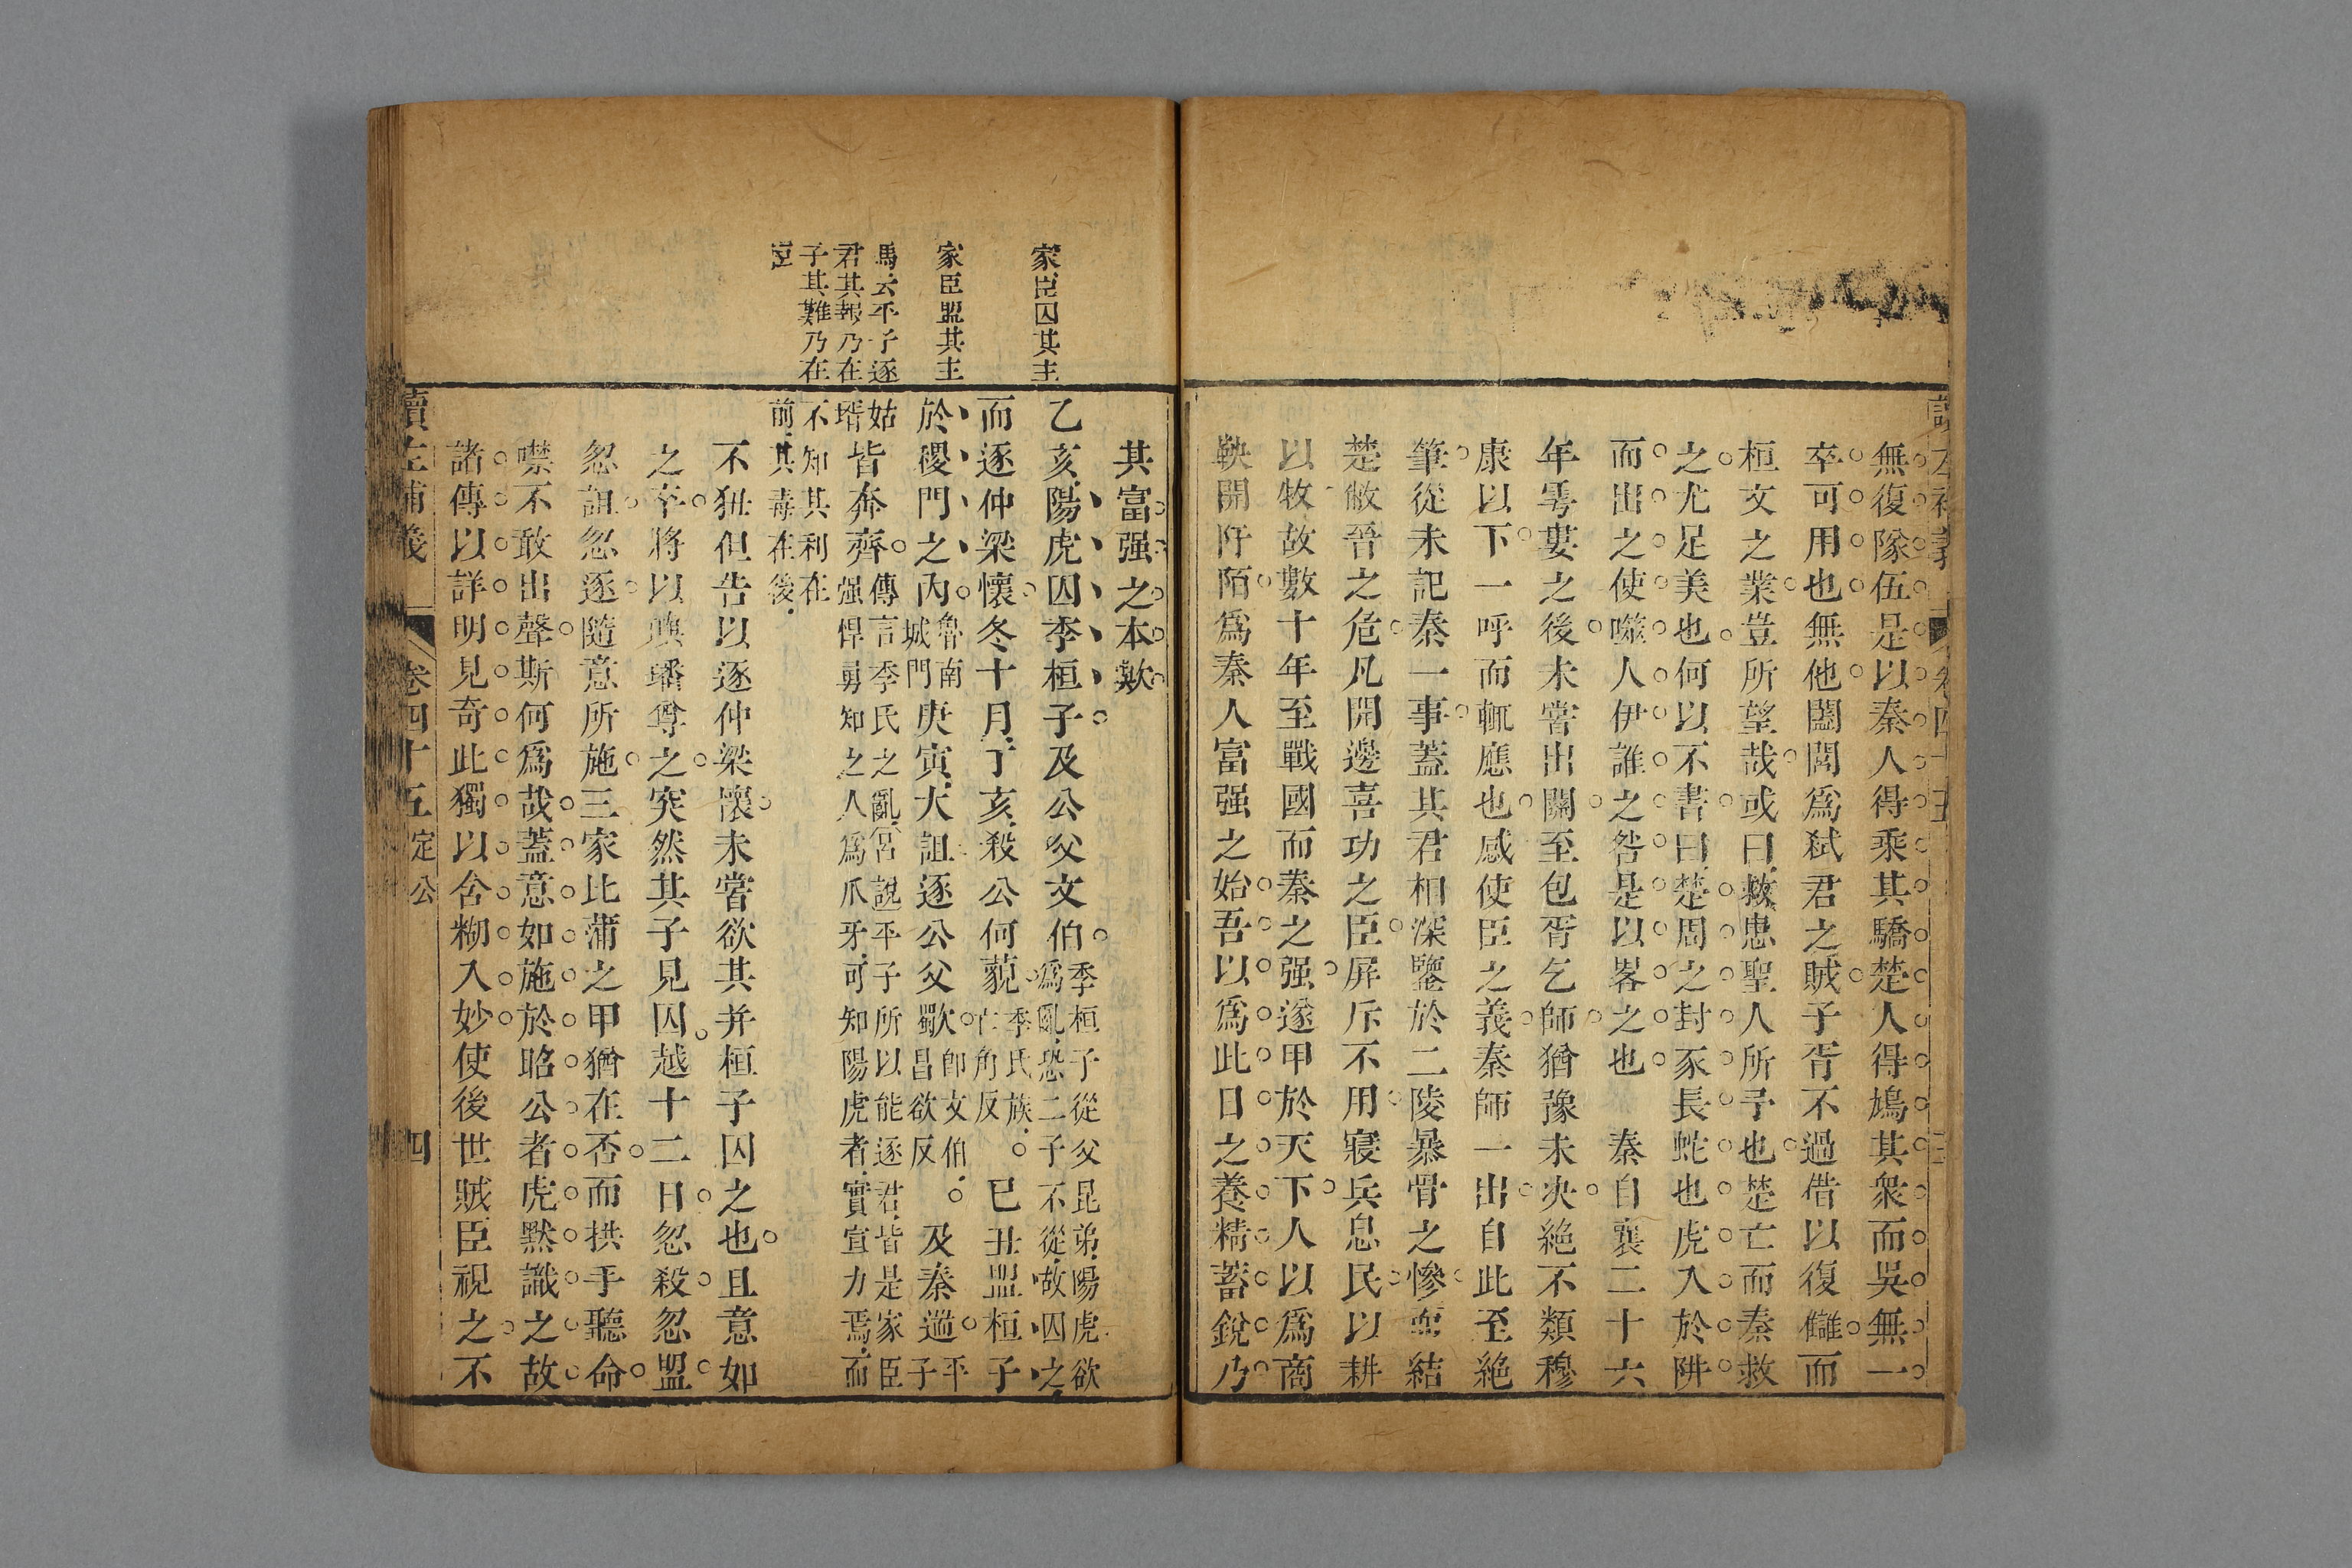 無復隊伍是以秦人得乘其驕楚人得鳩其衆而吳無一
卒可用也無他闔閭爲弑君之賊子胥不過借以復讎而
桓文之業豈所望哉或曰救患聖人所予也楚亡而秦救
之尤足美也何以不書曰楚周之封豕長蛇也虎入於阱
而出之使噬人伊誰之咎是以畧之也　秦自襄二十六
年雩婁之後未嘗出關至包胥乞師猶豫未决絶不類穆
康以下一呼而輒應也感使臣之義秦師一出自此至絶
筆從未記秦一事蓋其君相深鑒於二陵暴骨之慘
楚敝晉之危凡開邊喜功之臣屏斥不用寢兵息民以耕
以牧故數十年至戰國而秦之强遂甲於天下人以爲商
鞅開阡陌爲秦人富强之始吾以爲此日之養精蓄銳乃
其富强之本歟
家臣囚其主
乙亥陽虎囚季桓子及公父文伯季桓子從父昆弟陽虎欲爲亂恐二子不從故囚之
而逐仲梁懷冬十月丁亥殺公何藐季氏族亡角反己丑盟桓子
家臣盟其主
於稷門之內魯南城門庚寅大詛逐公父歜卽文伯昌欲反及秦遄平子
姑壻皆奔齊傳言季氏之亂宮說平子所以能逐君皆是家臣强悍勇知之人爲爪牙可知陽虎者實宣力焉而
不知其利在前其毒在後
馬云平子逐
君其報乃在
子其難乃在
不狃但告以逐仲梁懷未嘗欲其并桓子囚之也且意如
之卒將以璵璠葬之突然其子見囚越十二日忽殺忽盟
忽詛忽逐隨意所施三家比蒲之甲猶在否而拱手聽命
噤不敢出聲斯何爲哉蓋意如施於昭公者虎黙識之故
諸傳以詳明見奇此獨以含糊入妙使後世賊臣視之不
讀左補義　卷四十五　定公　四